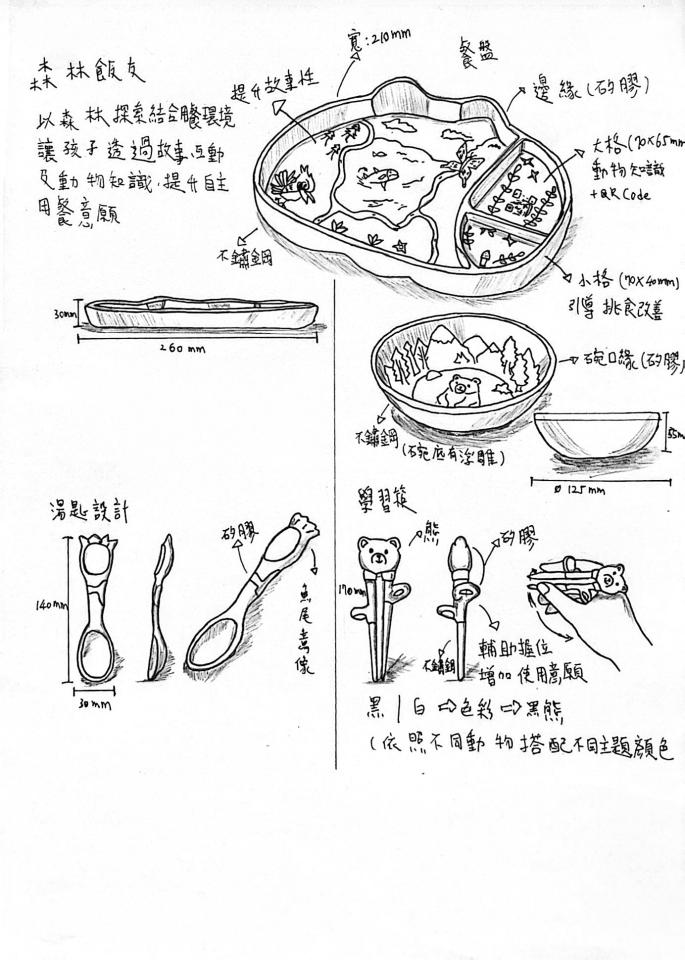 森林飯友
以森林探索結合餐環境
讓孩子透過故事互動
及動物知識,提升自主
用餐意願
寬:210mm
餐盤
提升故事性
邊緣(矽膠)
大格(70×65mm
動物知識
+QR Code
不鏽鋼
小格(70×40mm)
引導挑食改善
30mm
260mm
碗口緣(矽膠)
不鏽鋼
(碗底有浮雕)
55m
ø 125mm
湯匙設計
矽膠
魚尾意像
140mm
30mm
學習筷
熊
矽膠
170mm
不鏽鋼
輔助握位
增加使用意願
黑/白⇨色彩⇨黑熊
(依照不同動物搭配不同主題顏色